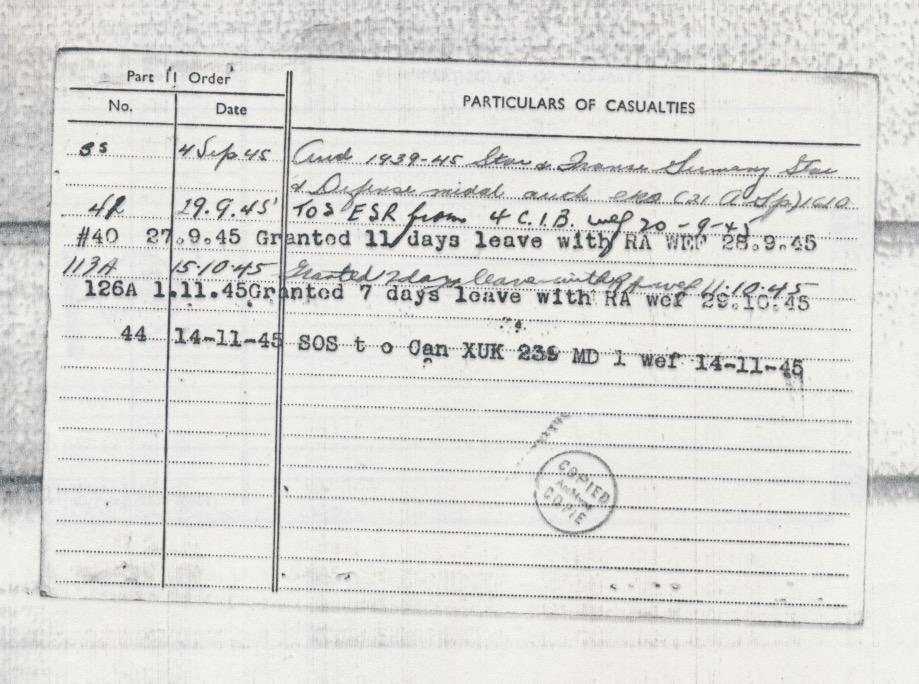 Part II Order
No. Date PARTICULARS OF CASUALTIES
35 4 Sep 45 Awd 1939-45 Star & France Germany Star
& Defense medal auth CRO (21 A Gp) 1610
42 29.9.45 TOS ESR from 4 C.I.B. wef 20-9-45
#40 27.9.45 Granted 11 days leave with RA WEF 28.9.45
113A 15.10.45 Granted days leave with RA wef 11.10.45
126A 1.11.45 Granted 7 days leave with RA wef 29.10.45
44 14-11-45 SOS t o Can XUK 239 MD 1 wef 14-11-45
COPIED
COPIE